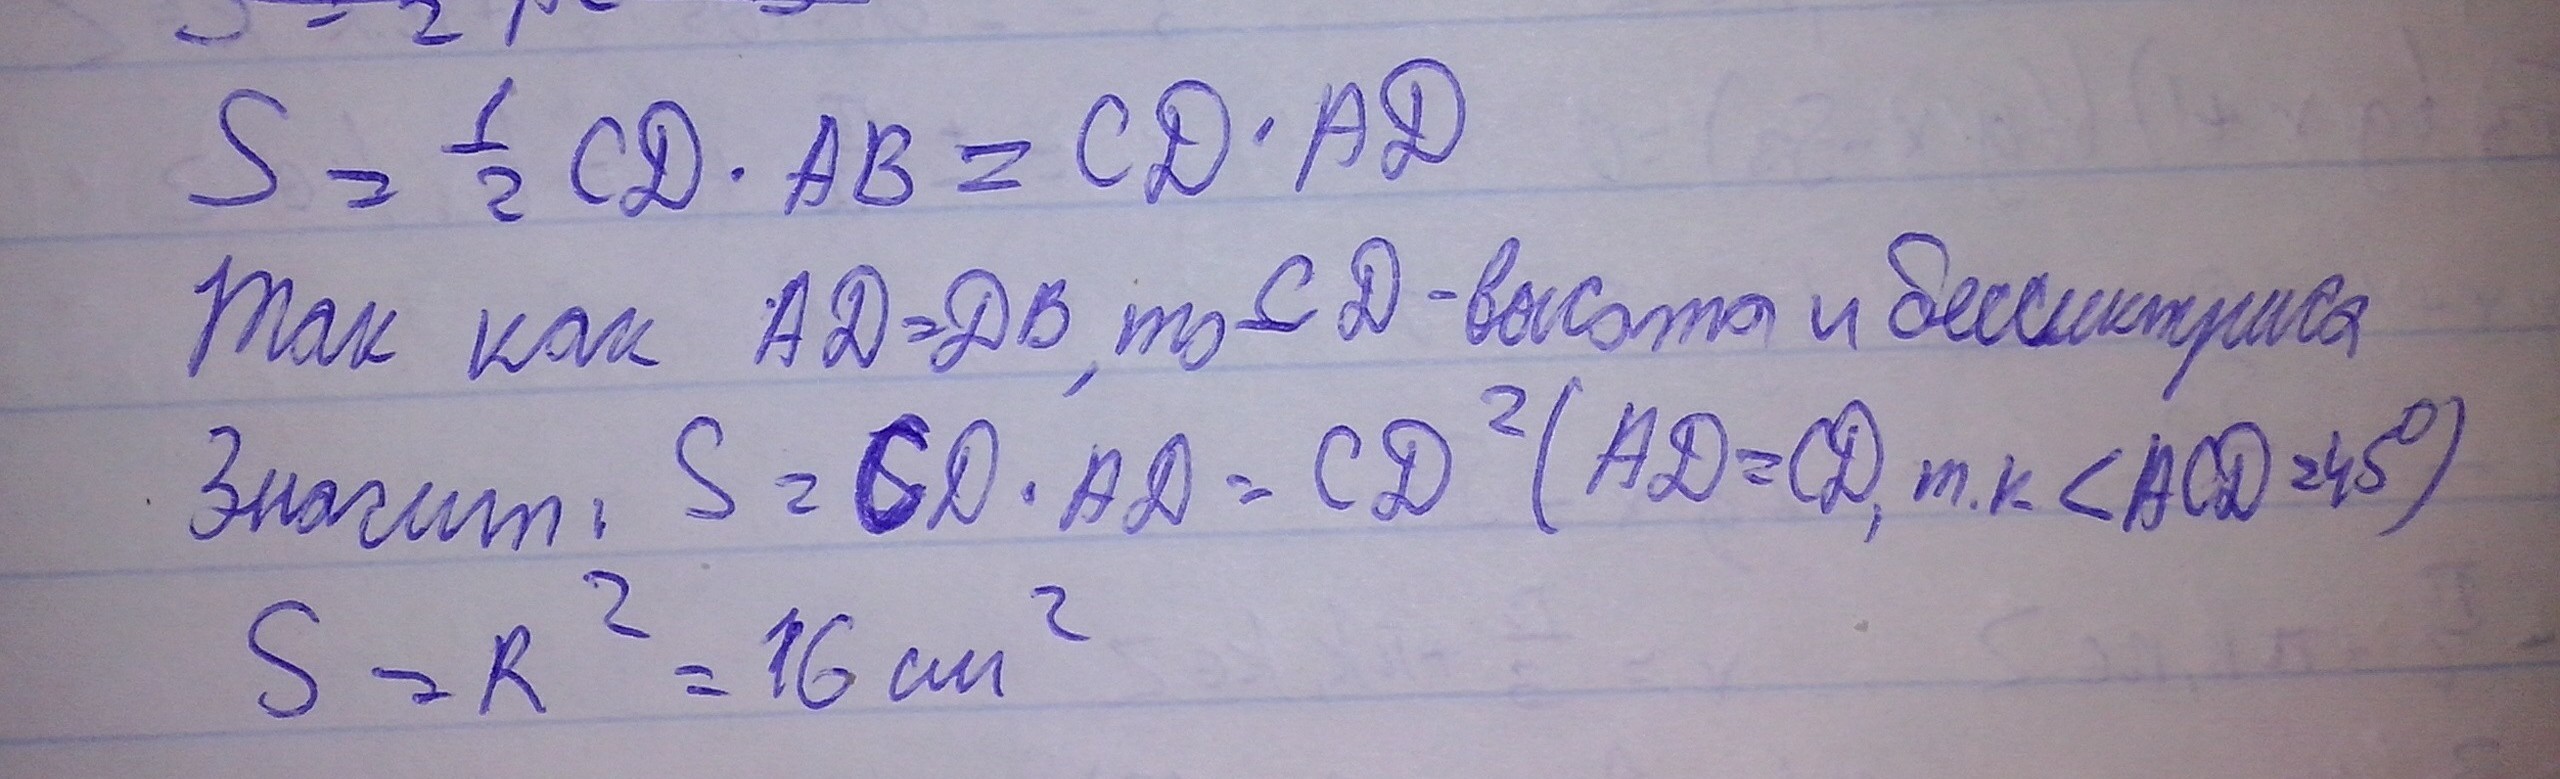 S = 1/2 CD · AB = CD · AD
Так как AD=DB, то CD - высота и бессиктриса
Значит, S = CD · AD = CD² (AD=CD, т.к <ACD=45°)
S = R² = 16 см²